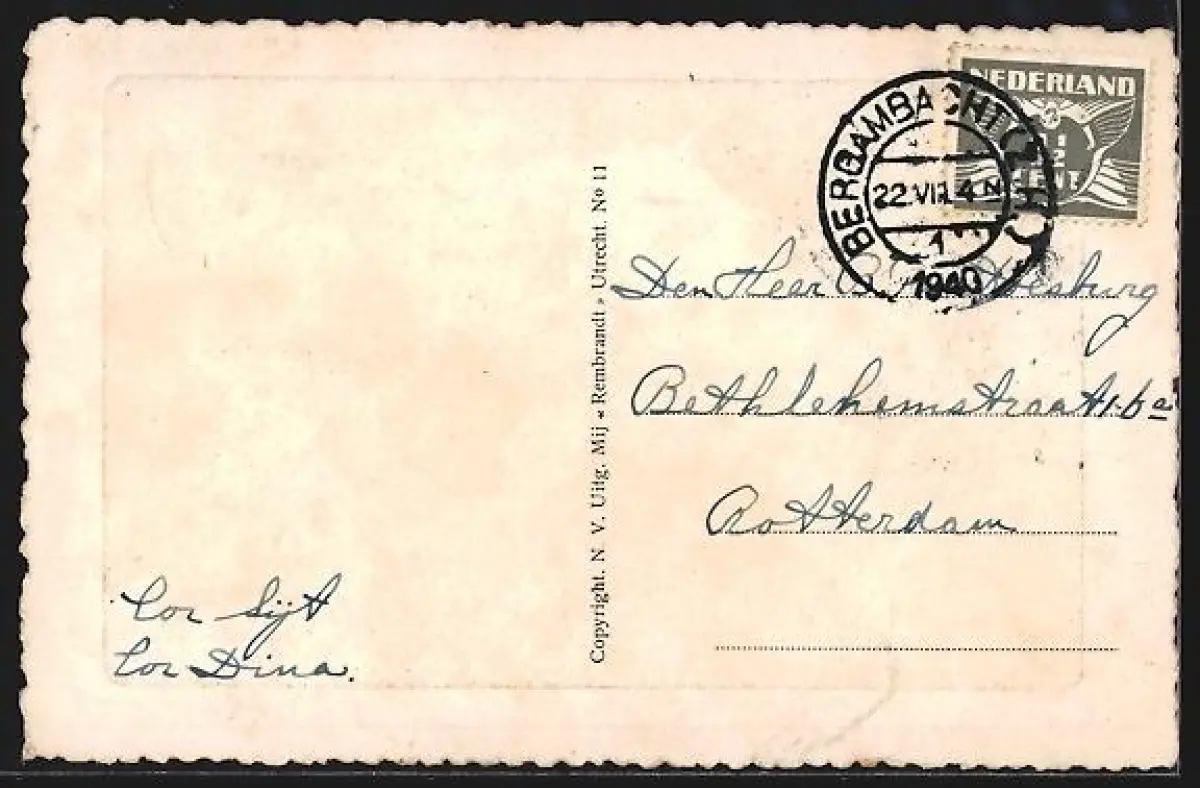 NEDERLAND
1/2
CENT
BERGAMBACHT (Z.H.)
22.VII. 4 N
1
1940
Den Heer
Bethlehemstraat
Rotterdam
Cor
Cor Dina.
Copyright. N V. Uitg. Mij « Rembrandt » Utrecht. Nº 11